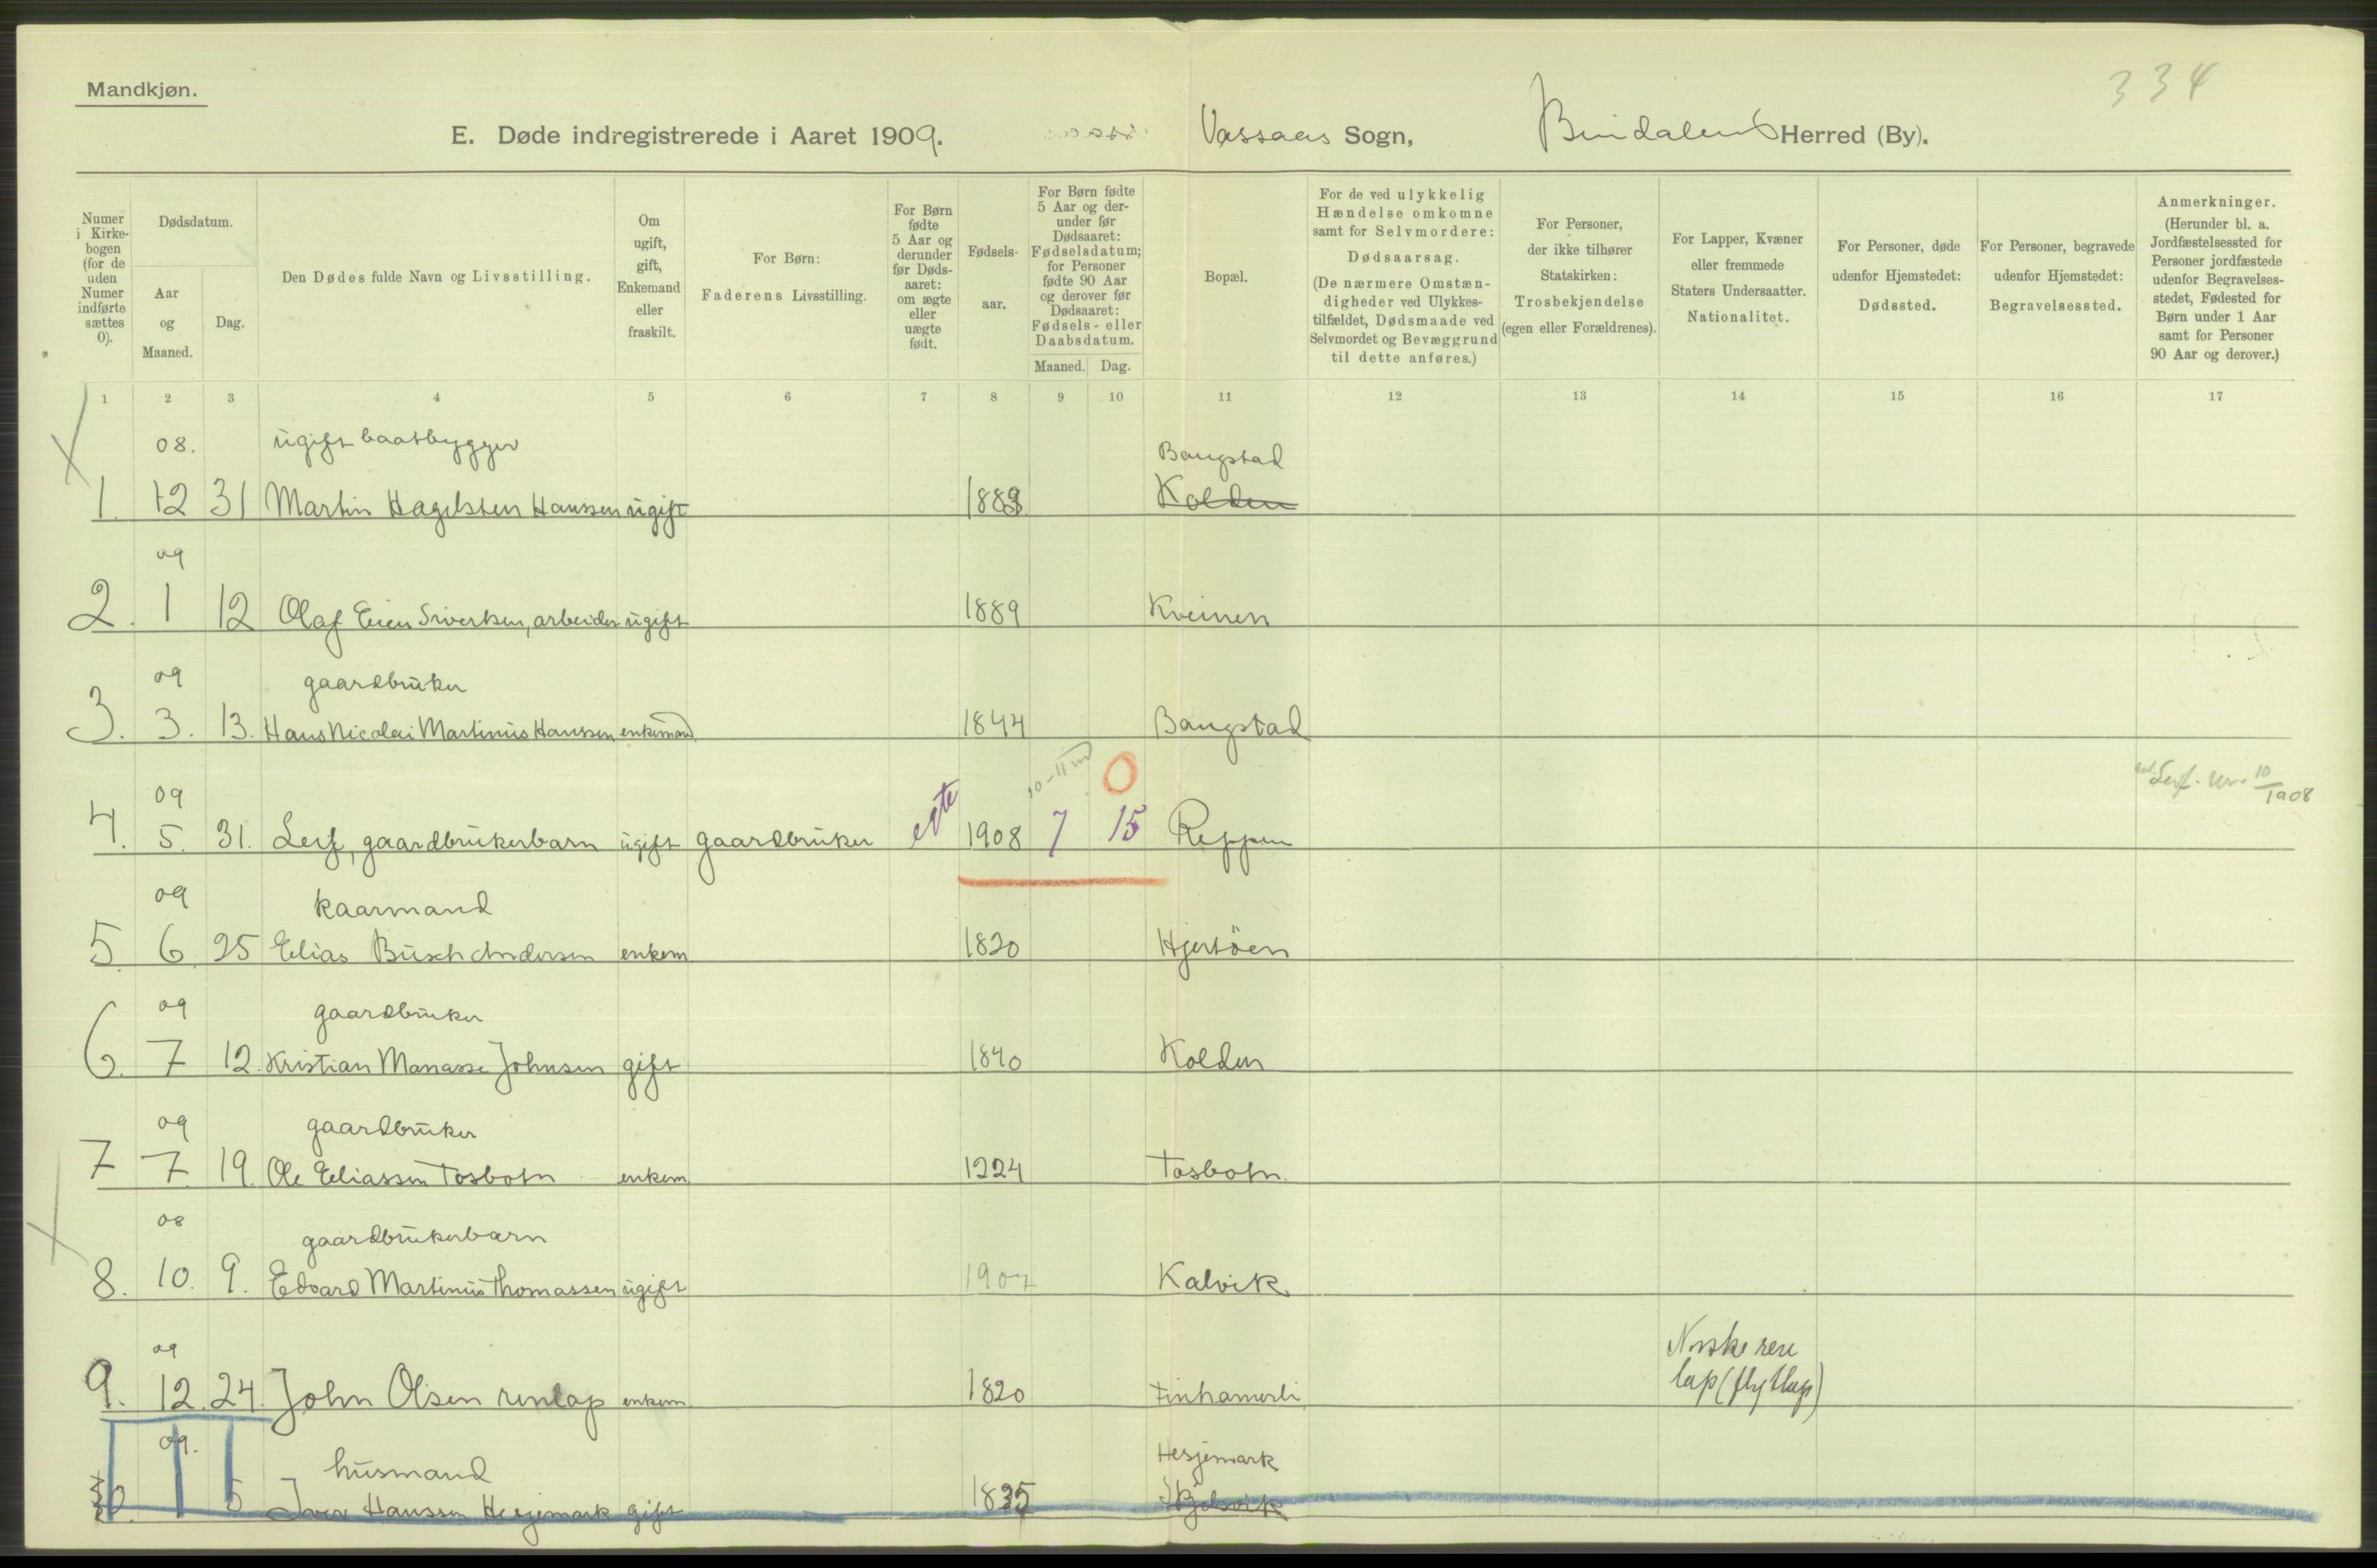 Mandkjøn.
334
E. Døde indregistrerede i Aaret 1909. Vassaas Sogn, Bindalens Herred (By).
Numer i Kirkebogen (for de uden Numer indførte sættes 0).
Dødsdatum.
Aar og Maaned.
Dag.
Den Dødes fulde Navn og Livsstilling.
Om ugift, gift, Enkemand eller fraskilt.
For Børn: Faderens Livsstilling.
For Børn fødte 5 Aar og derunder før Dødsaaret: om ægte eller uægte født.
Fødselsaar.
For Børn fødte 5 Aar og derunder før Dødsaaret: Fødselsdatum; for Personer fødte 90 Aar og derover før Dødsaaret: Fødsels- eller Daabsdatum.
Maaned. Dag.
Bopæl.
For de ved ulykkelig Hændelse omkomne samt for Selvmordere: Dødsaarsag. (De nærmere Omstændigheder ved Ulykkestilfældet, Dødsmaade ved Selvmordet og Bevæggrund til dette anføres.)
For Personer, der ikke tilhører Statskirken: Trosbekjendelse (egen eller Forældrenes).
For Lapper, Kvæner eller fremmede Staters Undersaatter. Nationalitet.
For Personer, døde udenfor Hjemstedet: Dødssted.
For Personer, begravede udenfor Hjemstedet: Begravelsessted.
Anmerkninger. (Herunder bl. a. Jordfæstelsessted for Personer jordfæstede udenfor Begravelsesstedet, Fødested for Børn under 1 Aar samt for Personer 90 Aar og derover.)
1 2 3 4 5 6 7 8 9 10 11 12 13 14 15 16 17
08. ugift baatbygger Bangstad
1. 12 31 Martin Hagelsten Hanssen ugift 1883 Kolden
09
2. 1 12 Olaf Sivertsen, arbeider ugift 1889 Kveinen
09 gaardbruker
3. 3. 13. Hans Nicolai Martinus Hanssen enkemand 1844 Bangstad
09 10-11 md 0 Leif. nr. 10/1908
4. 5. 31. Leif, gaardbrukerbarn ugift gaardbruker egte 1908 7 15 Reppen
09 kaarmand
5. 6. 25 Elias Busch Andersen enkem 1820 Hjertöen
09 gaardbruker
6. 7 12. Kristian Manasse Johnsen gift 1840 Kolden
09 gaardbruker
7 7. 19. Ole Eliassen Tosbotn enkem. 1824 Tosbotn.
08 gaardbrukerbarn
8. 10. 9. Edvard Martinus Thomassen ugift 1907 Kalvik
09 Norske ren
9. 12. 24. John Olsen renlap enkem. 1820 Finhamerli lap (flytlap)
09. husmand Hesjemark
10. 1 5 Iver Hanssen Hesjemark gift 1835